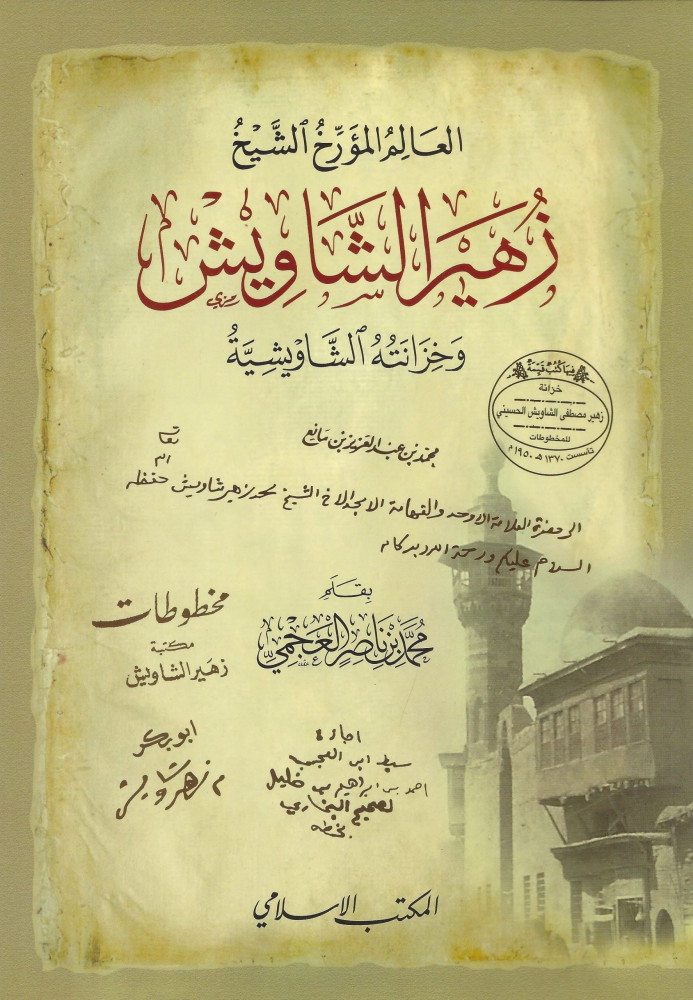 العَالِمُ المُؤَرِّخُ الشَّيْخُ
زُهَيْر الشَّاوِيْش
وَخِزَانَتُهُ الشَّاوِيْشِيَّةُ
فيها كتب قيمة
خزانة
زهير مصطفى الشاويش الحسيني
للمخطوطات
تأسست ١٣٧٠ هـ ١٩٥٠ م
محمد بن عبد العزيز بن مانع
الى حضرة العلامة الاوحد والفهامة الامجد الاخ الشيخ محمد زهير شاويش حفظه
السلام عليكم ورحمة الله وبركاته
بِقَلَمِ
مُحَمَّد بْن نَاصِر العَجْمِيّ
مخطوطات
مكتبة
زهير الشاويش
ابو بكر
م زهير شاويش
اجازة
سبط ابن العجمي
احمد بن ابراهيم بن خليل
لصحيح البخاري
بخطه
المكتب الاسلامي